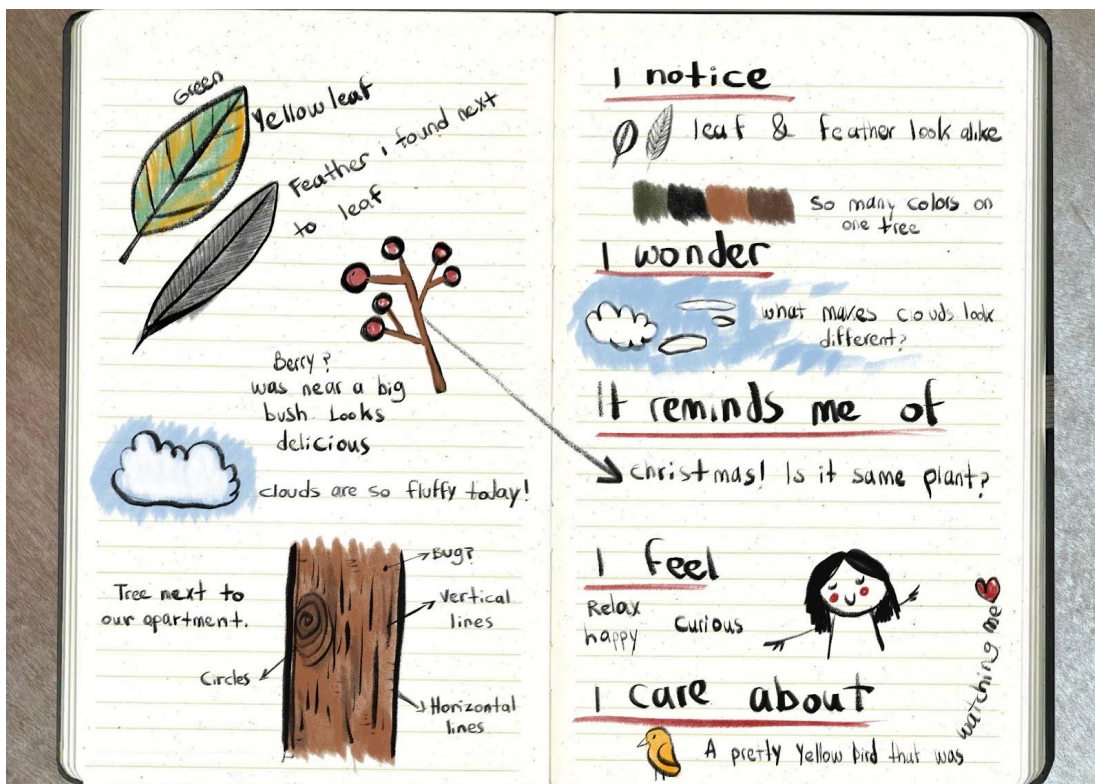 Green
Yellow leaf
Feather i found next
to leaf
Berry?
was near a big
bush. Looks
delicious
clouds are so fluffy today!
Tree next to
our apartment.
Bug?
Vertical
lines
Circles
Horizontal
lines
I notice
leaf & feather look alike
So many colors on
one tree
I wonder
what makes clouds look
different?
It reminds me of
christmas! Is it same plant?
I feel
Relax
happy
curious
I care about
A pretty yellow bird that was
watching me